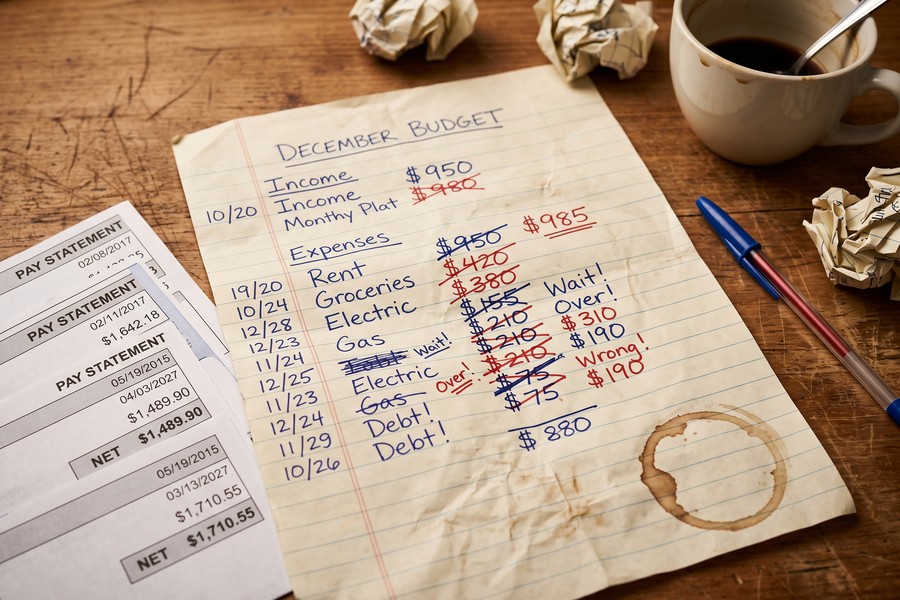 DECEMBER BUDGET
Income $950
10/20 Income $980
Monthy Plat
$985
Expenses $950
19/20 Rent $420
10/24 Groceries $380
12/28 Electric $155 Wait!
12/23 Gas $210 Over!
11/24 Wait! $210 $310
12/25 Electric Over! $210 $190
11/23 Gas $75 Wrong!
12/24 Debt! $75 $190
11/29 Debt! $880
10/26
PAY STATEMENT
02/08/2017
PAY STATEMENT
02/11/2017
$1,642.18
PAY STATEMENT
05/19/2015
04/03/2027
$1,489.90
NET $1,489.90
05/19/2015
03/13/2027
$1,710.55
NET $1,710.55